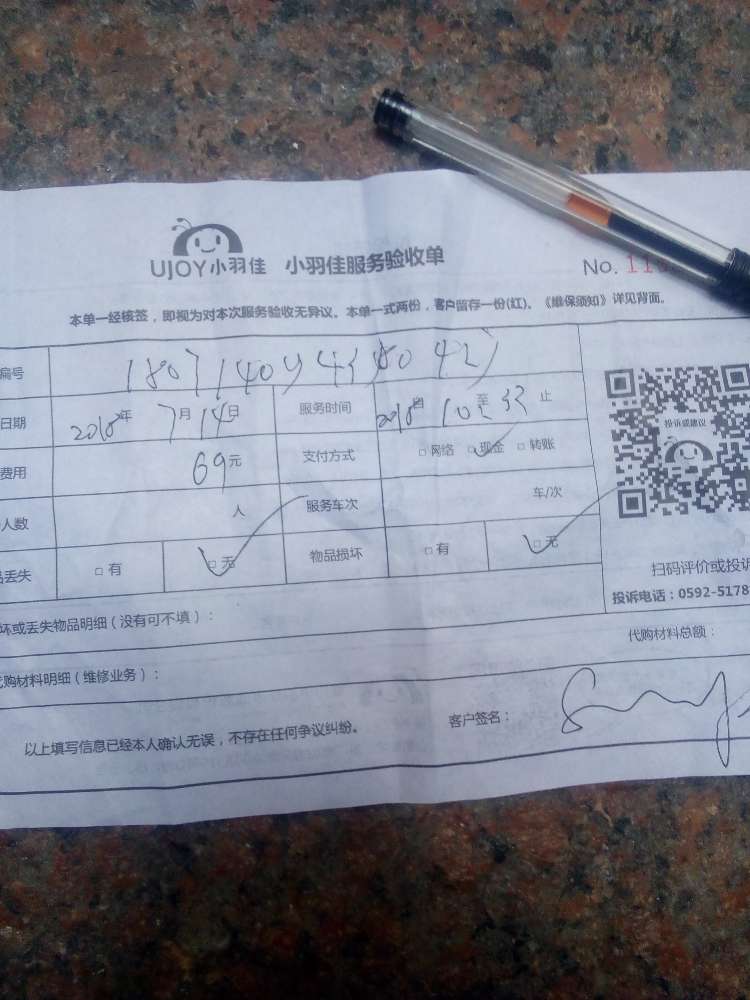 UJOY小羽佳 小羽佳服务验收单
No. 11
本单一经核签，即视为对本次服务验收无异议。本单一式两份，客户留存一份(红)。《维保须知》详见背面。
编号
日期 2018年 7月 14日 服务时间 2018自 10至 止
费用 69元 支付方式 □网络 □现金 □转账
人数 人 服务车次 车/次
丢失 □有 □无 物品损坏 □有 □无
投诉或建议
扫码评价或投诉
投诉电话：0592-5178
坏或丢失物品明细（没有可不填）：
代购材料总额：
代购材料明细（维修业务）：
以上填写信息已经本人确认无误，不存在任何争议纠纷。
客户签名：